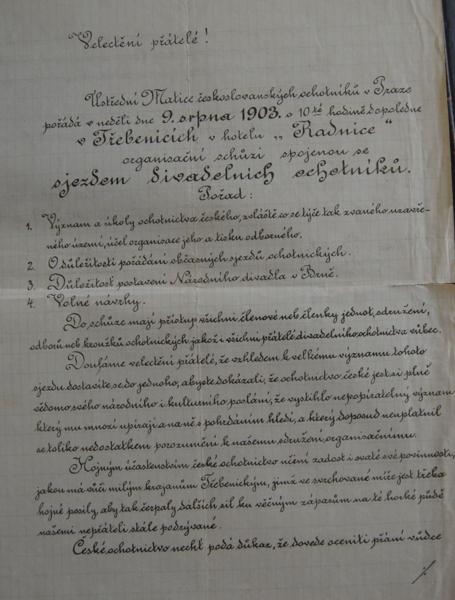 Velectění přátelé!
Ustřední Matice českoslovanských ochotníků v Praze
pořádá v neděli dne 9. srpna 1903. o 10té hodině dopoledne
v Třebenicích v hotelu „Radnice"
organisační schůzi spojenou se
sjezdem divadelních ochotníků.
Pořad:
1. Význam a úkoly ochotnictva českého, zvláště co se týče tak zvaného uzavře-
ného území, účel organisace jeho a tisku odborného.
2. O důležitosti pořádání občasných sjezdů ochotnických.
3. Důležitost postavení Národního divadla v Brně.
4. Volné návrhy.
Do schůze mají přístup všichni členové neb členky jednot, sdružení,
odborů neb kroužků ochotnických jakož i všichni přátelé divadelního ochotnictva vůbec.
Doufáme velectění přátelé, že vzhledem k velkému významu tohoto
sjezdu dostavíte se do jednoho, abyste dokázali, že ochotnictvo české jest si plně
vědomo svého národního i kulturního poslání, že vystihlo nepopíratelný význam
který mu mnozí upírají a na něž s pohrdáním hledí, a který doposud neuplatnil
se toliko nedostatkem porozumění k našemu sdružení organisačnímu.
Hojným účastenstvím české ochotnictvo učení zadost i svaté své povinnosti,
jakou má vůči milým krajanům Třebenickým, jimž ve svrchované míře jest třeba
hojné posily, aby tak čerpaly dalších sil ku věčným zápasům na té horké půdě
našemi nepřáteli stále podrývané.
České ochotnictvo nechť podá důkaz, že dovede oceniti přání vůdce